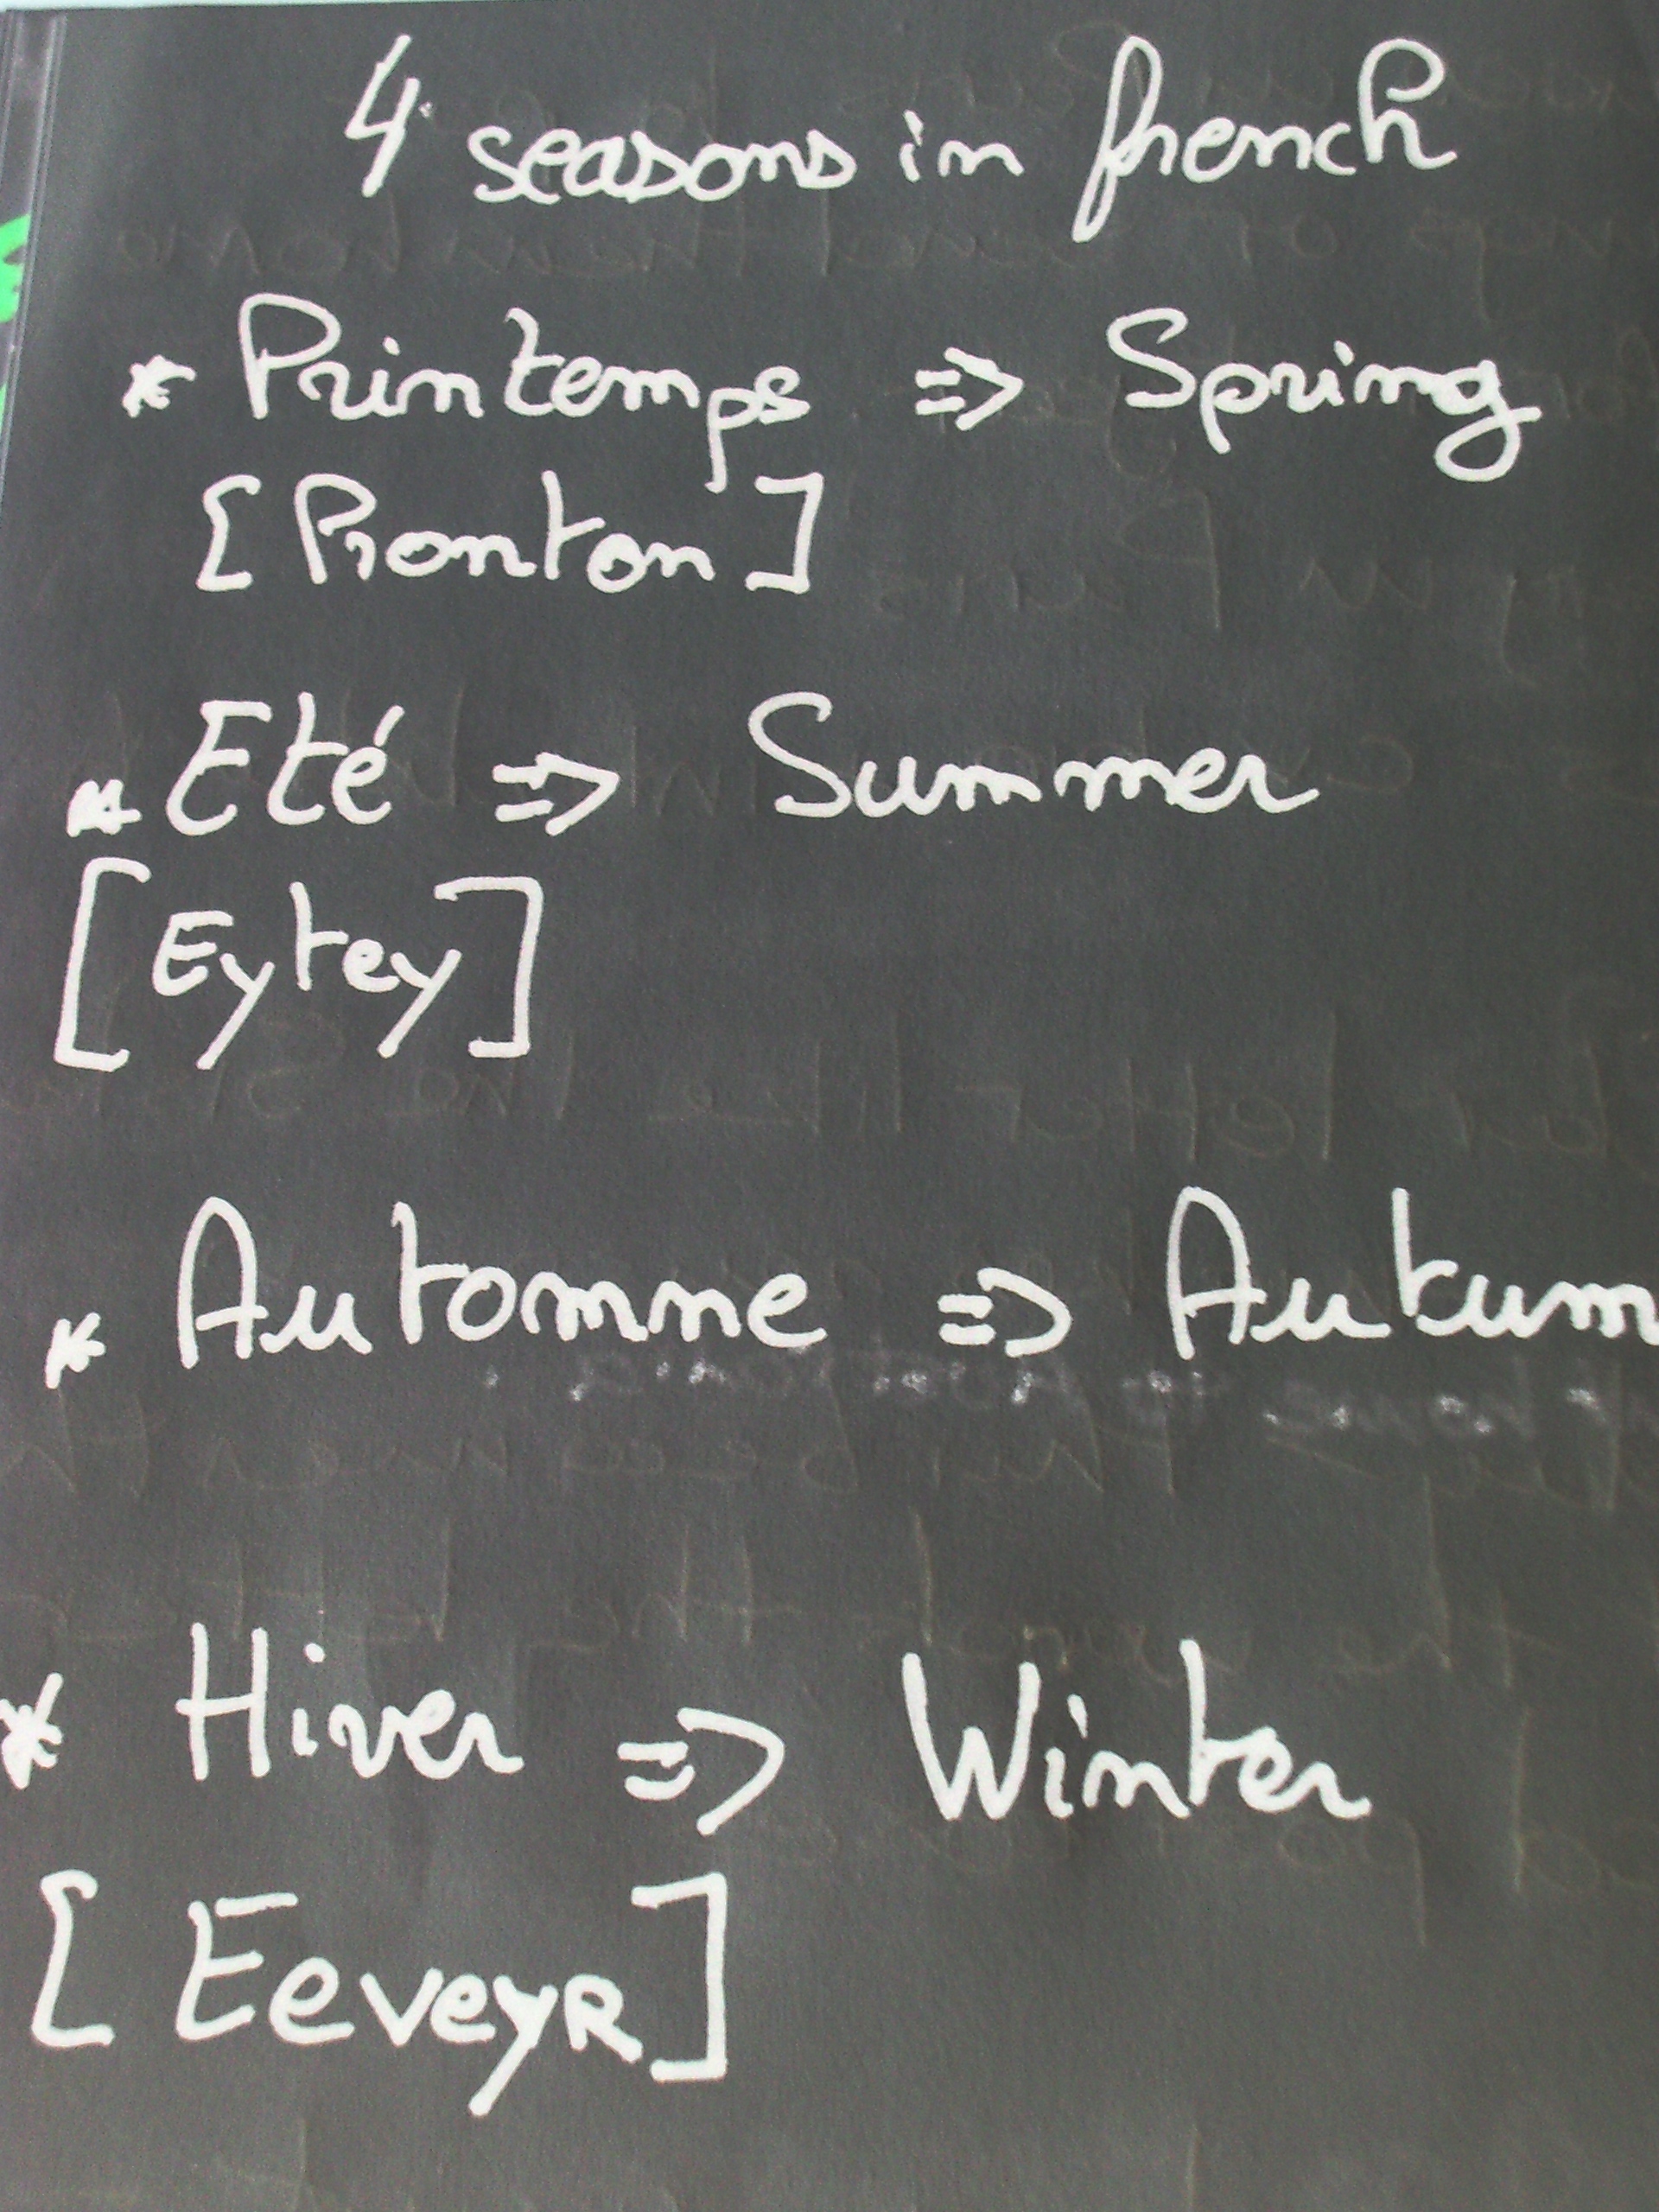 4 seasons in french
* Printemps => Spring
[Pronton]
* Eté => Summer
[Eytey]
* Automne => Autum
* Hiver => Winter
[EeveyR]